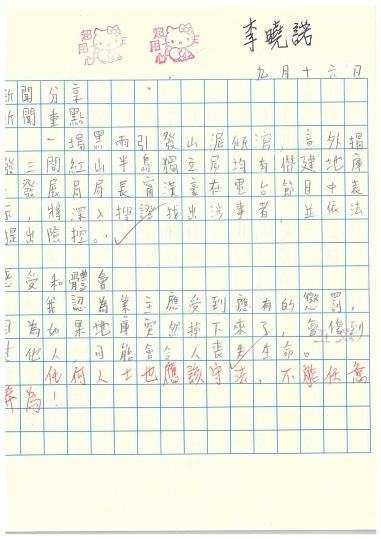 超用心
超用心
李曉諾
九月十六日
新聞分享
新聞重點
一場黑雨引發山泥傾瀉，意外揭
發三間紅山半島獨立屋均有僭建地庫
。發展局局長甯漢豪在電台節目中表
示，將深入搜證找出涉事者，並依法
提出檢控。
感受和體會
我認為業主應受到應有的懲罰，
因為如果地庫突然掉下來了，會傷到
其他人，可能會令人喪失生命。
任何人士也應該守法，不能任意
妄為！